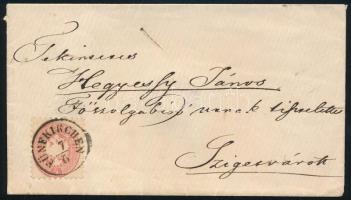 Tekintetes
Hegyessy János
Főszolgabiró urnak tisztelettel
Szigetvárott
FÜNFKIRCHEN
7/6